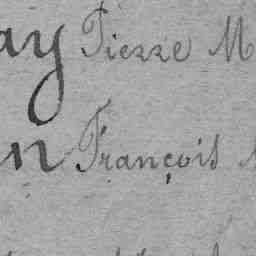 ay Pierre M
n François